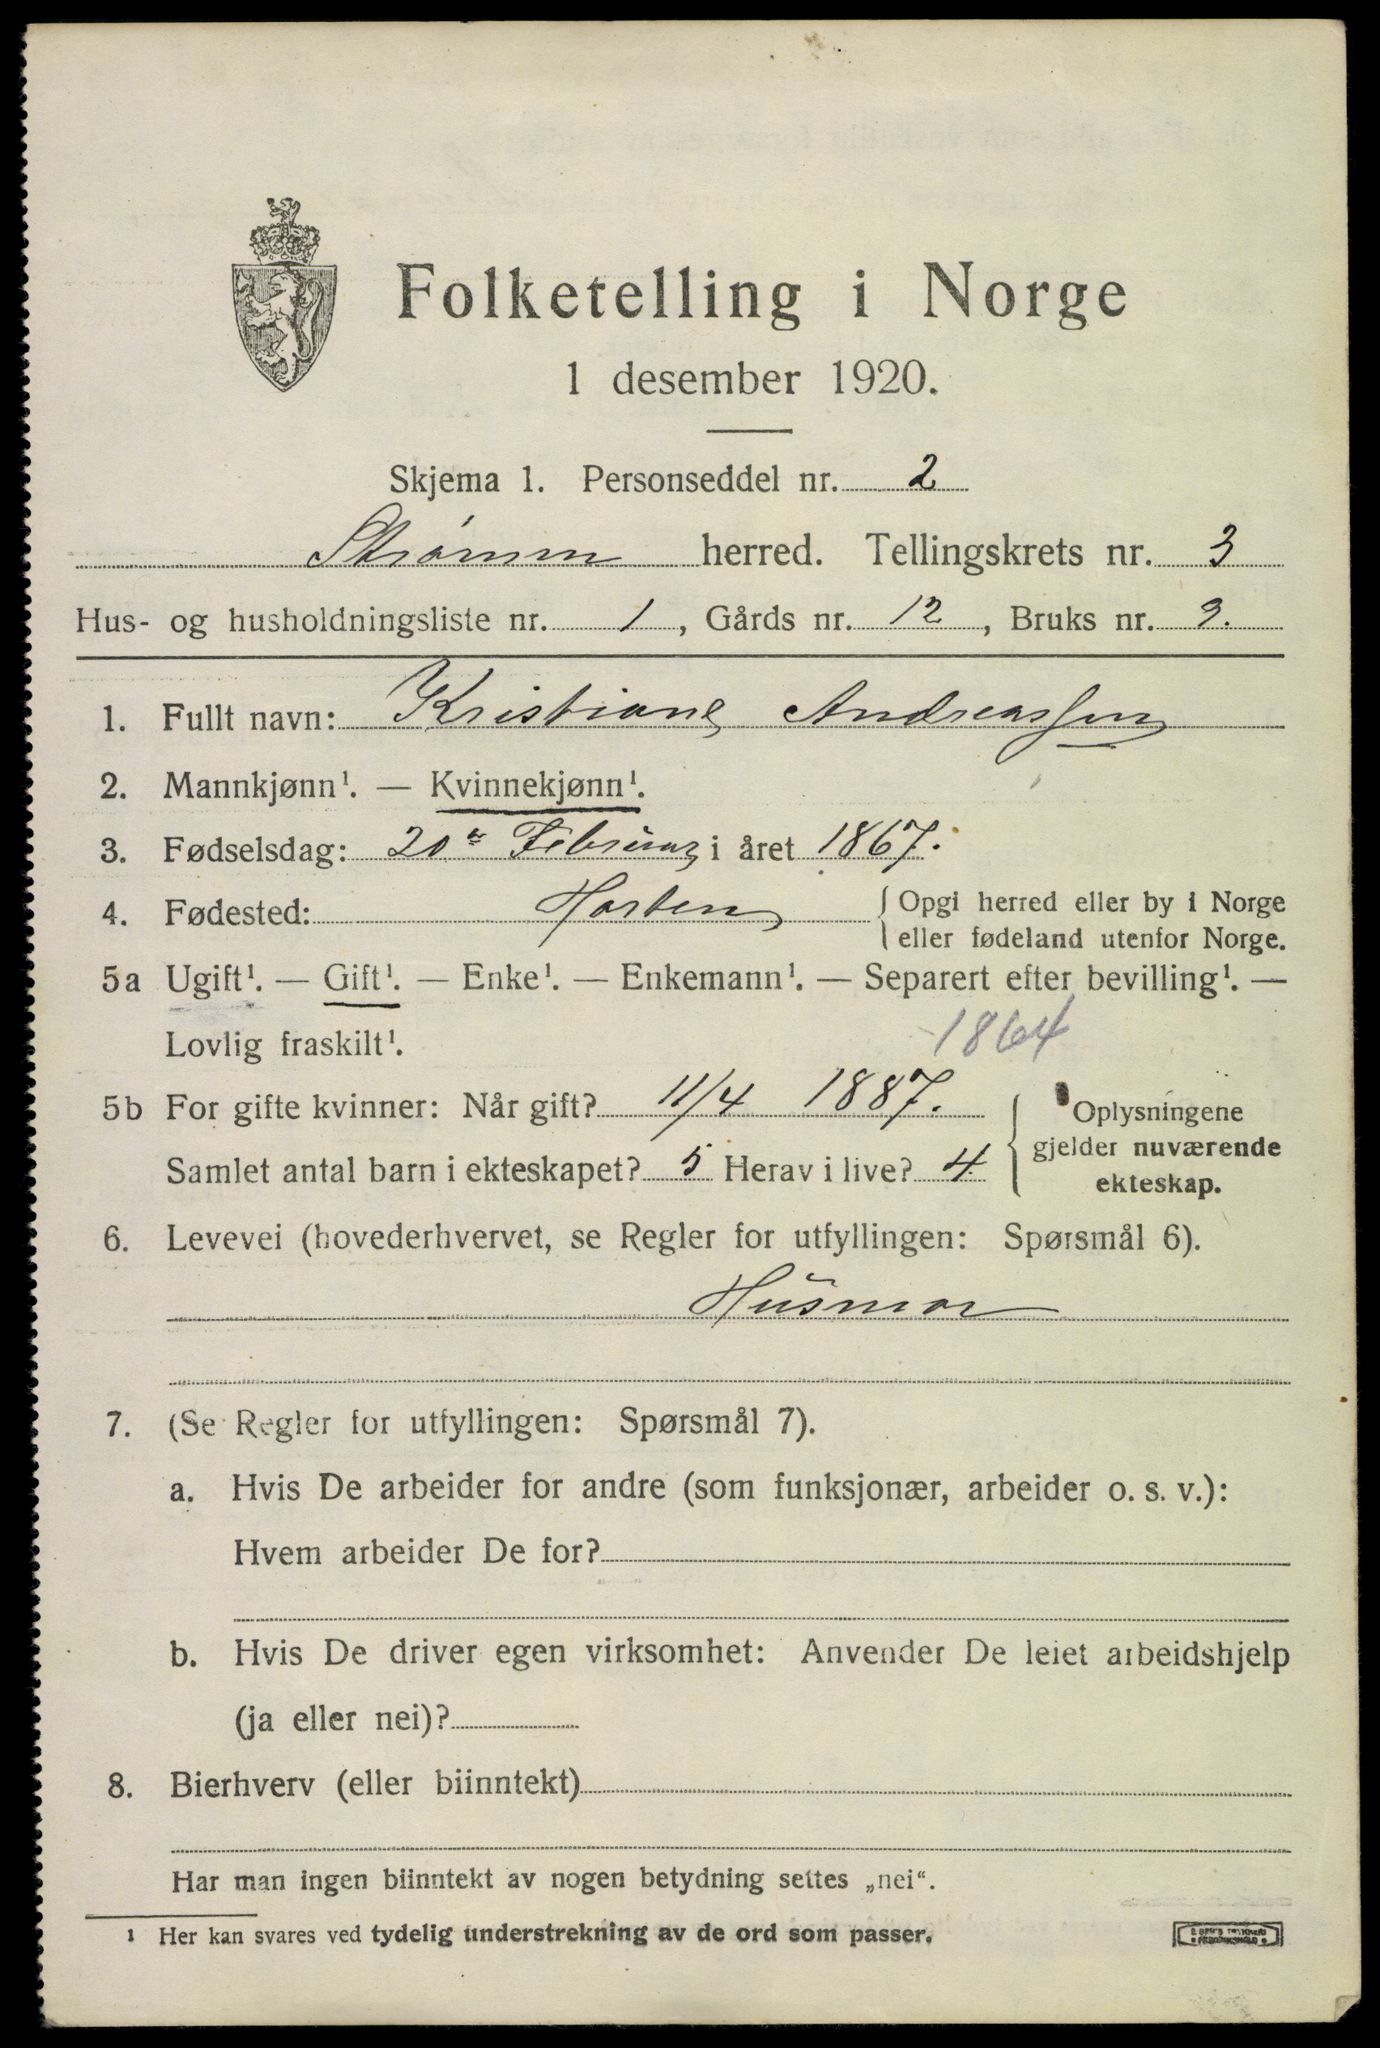 Folketelling i Norge
1 desember 1920.
Skjema 1. Personseddel nr. 2
Strømm herred. Tellingskrets nr. 3
Hus- og husholdningsliste nr. 1, Gårds nr. 12, Bruks nr. 9.
1. Fullt navn: Kristiane Andreassen
2. Mannkjønn¹. — Kvinnekjønn¹.
3. Fødselsdag: 20de Februar i året 1867.
4. Fødested: Horten { Opgi herred eller by i Norge
eller fødeland utenfor Norge.
5a Ugift¹. — Gift¹. — Enke¹. — Enkemann¹. — Separert efter bevilling¹. —
Lovlig fraskilt¹. 1864
5b For gifte kvinner: Når gift? 11/4 1887. { Oplysningene
gjelder nuværende
Samlet antal barn i ekteskapet? 5 Herav i live? 4
ekteskap.
6. Levevei (hovederhvervet, se Regler for utfyllingen: Spørsmål 6).
Husmor
7. (Se Regler for utfyllingen: Spørsmål 7).
a. Hvis De arbeider for andre (som funksjonær, arbeider o. s. v.):
Hvem arbeider De for?
b. Hvis De driver egen virksomhet: Anvender De leiet arbeidshjelp
(ja eller nei)?
8. Bierhverv (eller biinntekt)
Har man ingen biinntekt av nogen betydning settes „nei“.
¹ Her kan svares ved tydelig understrekning av de ord som passer.